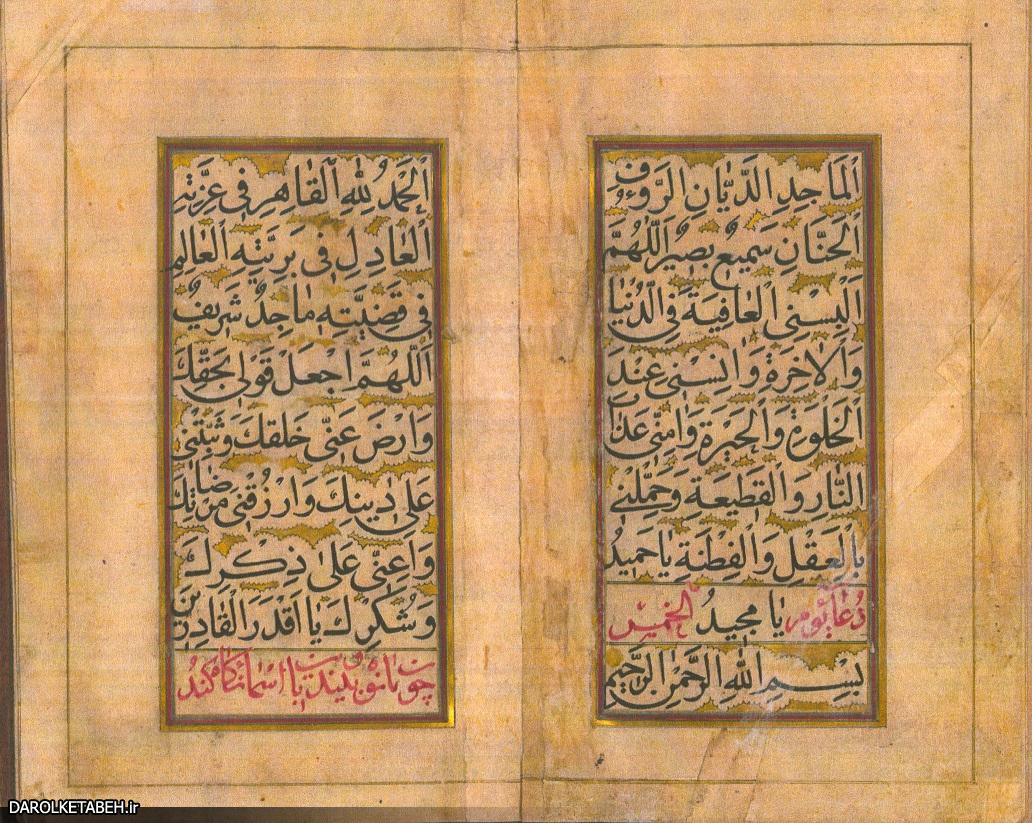 اَلْمَاجِدِ الدَّيَّانِ الرَّؤُفِ
الْحَنَّانِ سَمِيعٌ بَصِيرٌ اَللّٰهُمَّ
اَلْبِسْنِى الْعَافِيَةَ فِى الدُّنْيَا
وَالْاٰخِرَةِ وَانِسْنِى عِنْدَ
الْخَلْوَةِ وَالْحَيْرَةِ وَامِنِّى عَذَابَ
النَّارِ وَالْقَطِيعَةِ وَجَمِّلْنِى
بِالْعَقْلِ وَالْفِطْنَةِ يَا حَمِيدُ
دُعَاءِ يَوْمِ يَا مَجِيدُ الْخَمِيْسْ
بِسْمِ اللّٰهِ الرَّحْمٰنِ الرَّحِيمِ
اَلْحَمْدُ لِلّٰهِ الْقَاهِرِ فِى عِزَّتِهِ
الْعَادِلِ فِى بَرِيَّتِهِ الْعَالِمِ
فِى قَضِيَّتِهِ مَاجِدٌ شَرِيفٌ
اَللّٰهُمَّ اجْعَلْ قَوْلِى بِحَقِّكَ
وَارْضَ عَنِّى خَلْقَكَ وَثَبِّتْنِى
عَلٰى دِينِكَ وَارْزُقْنِى مَرْضَاتِكَ
وَاَعِنِّى عَلٰى ذِكْرِكَ
وَشُكْرِكَ يَا اَقْدَرَ الْقَادِرِينَ
چون ماه نو بینند با اسمان نگاه کند
DAROLKETABEH.ir